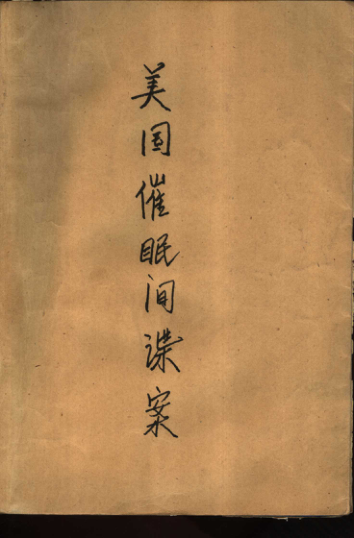 美国催眠间谍案